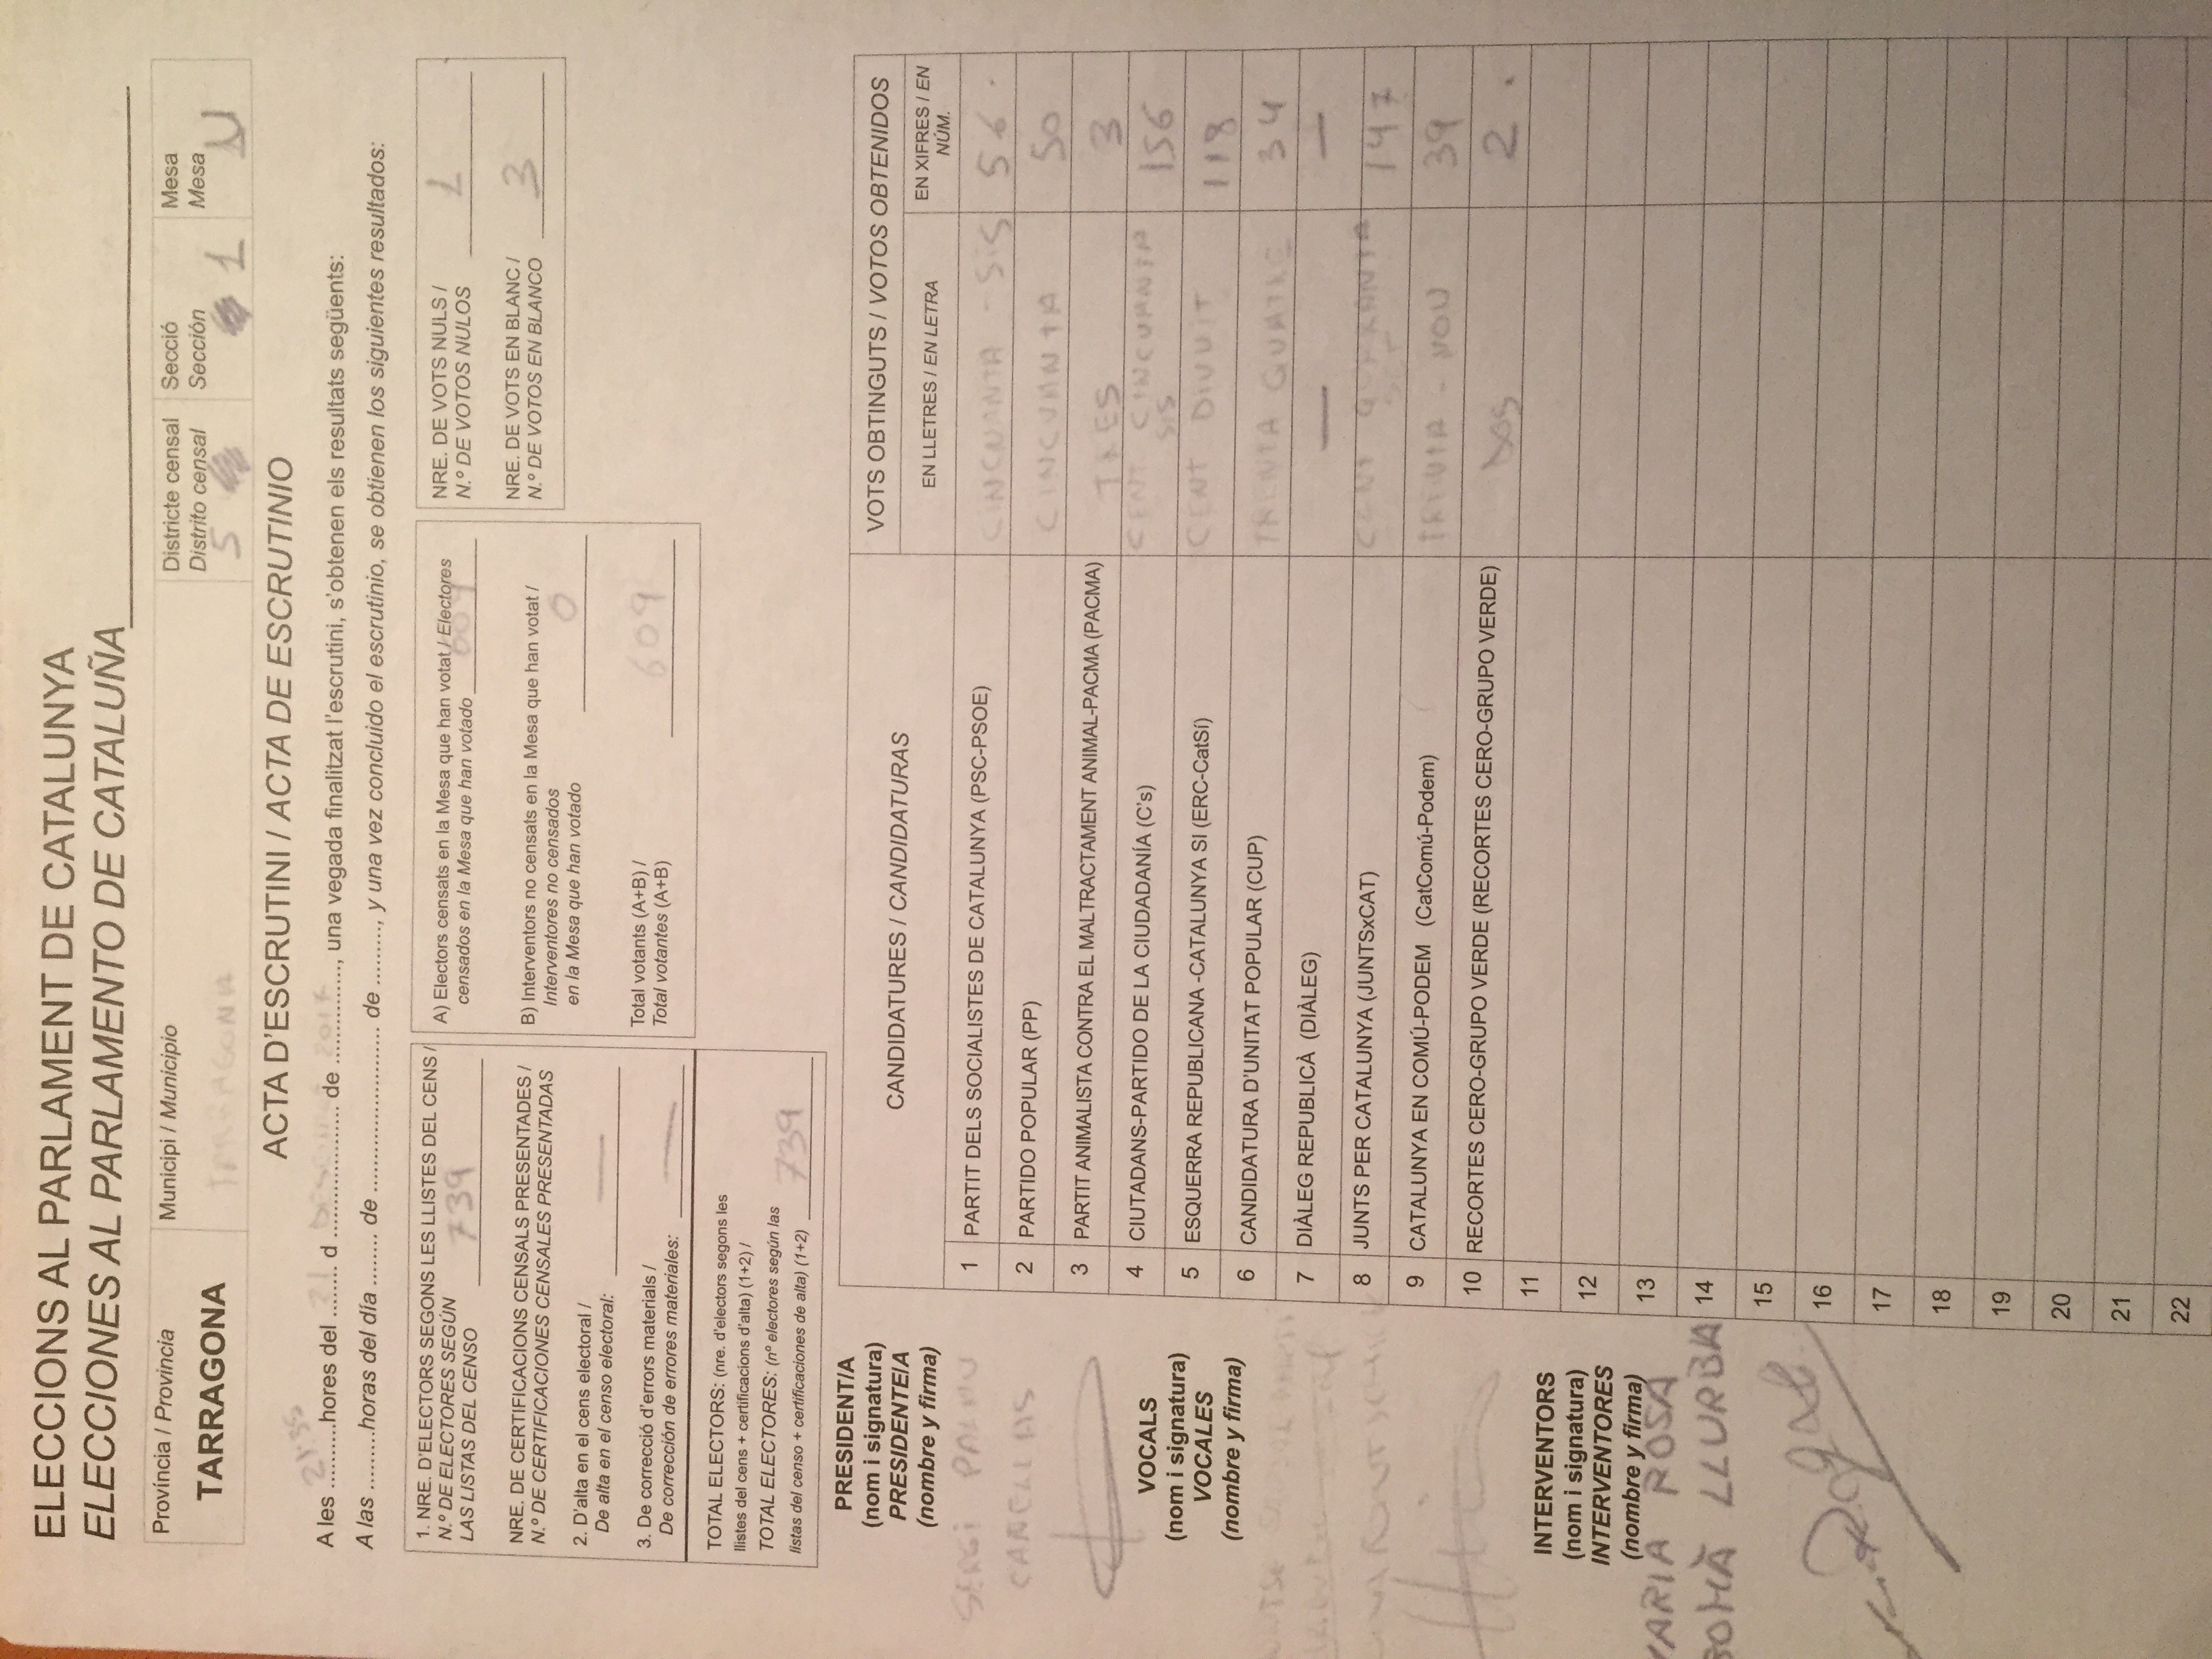 ELECCIONS AL PARLAMENT DE CATALUNYA
ELECCIONES AL PARLAMENTO DE CATALUÑA
Província / Provincia
TARRAGONA
Municipi / Municipio
TARRAGONA
Districte censal
Distrito censal
5
Secció
Sección
1
Mesa
Mesa
U
ACTA D'ESCRUTINI / ACTA DE ESCRUTINIO
21:35
A les ..........hores del 21 d DESEMBRE de 2017, una vegada finalitzat l'escrutini, s'obtenen els resultats següents:
A las .........horas del día ........ de ............................ de ........., y una vez concluido el escrutinio, se obtienen los siguientes resultados:
1. NRE. D'ELECTORS SEGONS LES LLISTES DEL CENS /
N.º DE ELECTORES SEGÚN
LAS LISTAS DEL CENSO 739
NRE. DE CERTIFICACIONS CENSALS PRESENTADES /
N.º DE CERTIFICACIONES CENSALES PRESENTADAS
2. D'alta en el cens electoral /
De alta en el censo electoral: —
3. De correcció d'errors materials /
De corrección de errores materiales: —
TOTAL ELECTORS: (nre. d'electors segons les
llistes del cens + certificacions d'alta) (1+2) /
TOTAL ELECTORES: (nº electores según las
listas del censo + certificaciones de alta) (1+2) 739
A) Electors censats en la Mesa que han votat / Electores
censados en la Mesa que han votado 609
B) Interventors no censats en la Mesa que han votat /
Interventores no censados
en la Mesa que han votado 0
Total votants (A+B) /
Total votantes (A+B) 609
NRE. DE VOTS NULS /
N.º DE VOTOS NULOS 1
NRE. DE VOTS EN BLANC /
N.º DE VOTOS EN BLANCO 3
PRESIDENT/A
(nom i signatura)
PRESIDENTE/A
(nombre y firma)
SERGI
VOCALS
(nom i signatura)
VOCALES
(nombre y firma)
INTERVENTORS
(nom i signatura)
INTERVENTORES
(nombre y firma)
MARIA ROSA
LLURBA
CANDIDATURES / CANDIDATURAS
VOTS OBTINGUTS / VOTOS OBTENIDOS
EN LLETRES / EN LETRA
EN XIFRES / EN
NÚM.
1 PARTIT DELS SOCIALISTES DE CATALUNYA (PSC-PSOE) CINCUANTA - SIS 56
2 PARTIDO POPULAR (PP) CINCUANTA 50
3 PARTIT ANIMALISTA CONTRA EL MALTRACTAMENT ANIMAL-PACMA (PACMA) TRES 3
4 CIUTADANS-PARTIDO DE LA CIUDADANÍA (C's) CENT CINCUANTA SIS 156
5 ESQUERRA REPUBLICANA -CATALUNYA SI (ERC-CatSí) CENT DIVUIT 118
6 CANDIDATURA D'UNITAT POPULAR (CUP) TRENTA QUATRE 34
7 DIÀLEG REPUBLICÀ (DIÀLEG) — —
8 JUNTS PER CATALUNYA (JUNTSxCAT) CENT QUARANTA SET 147
9 CATALUNYA EN COMÚ-PODEM (CatComú-Podem) TRENTA - NOU 39
10 RECORTES CERO-GRUPO VERDE (RECORTES CERO-GRUPO VERDE) DOS 2
11
12
13
14
15
16
17
18
19
20
21
22